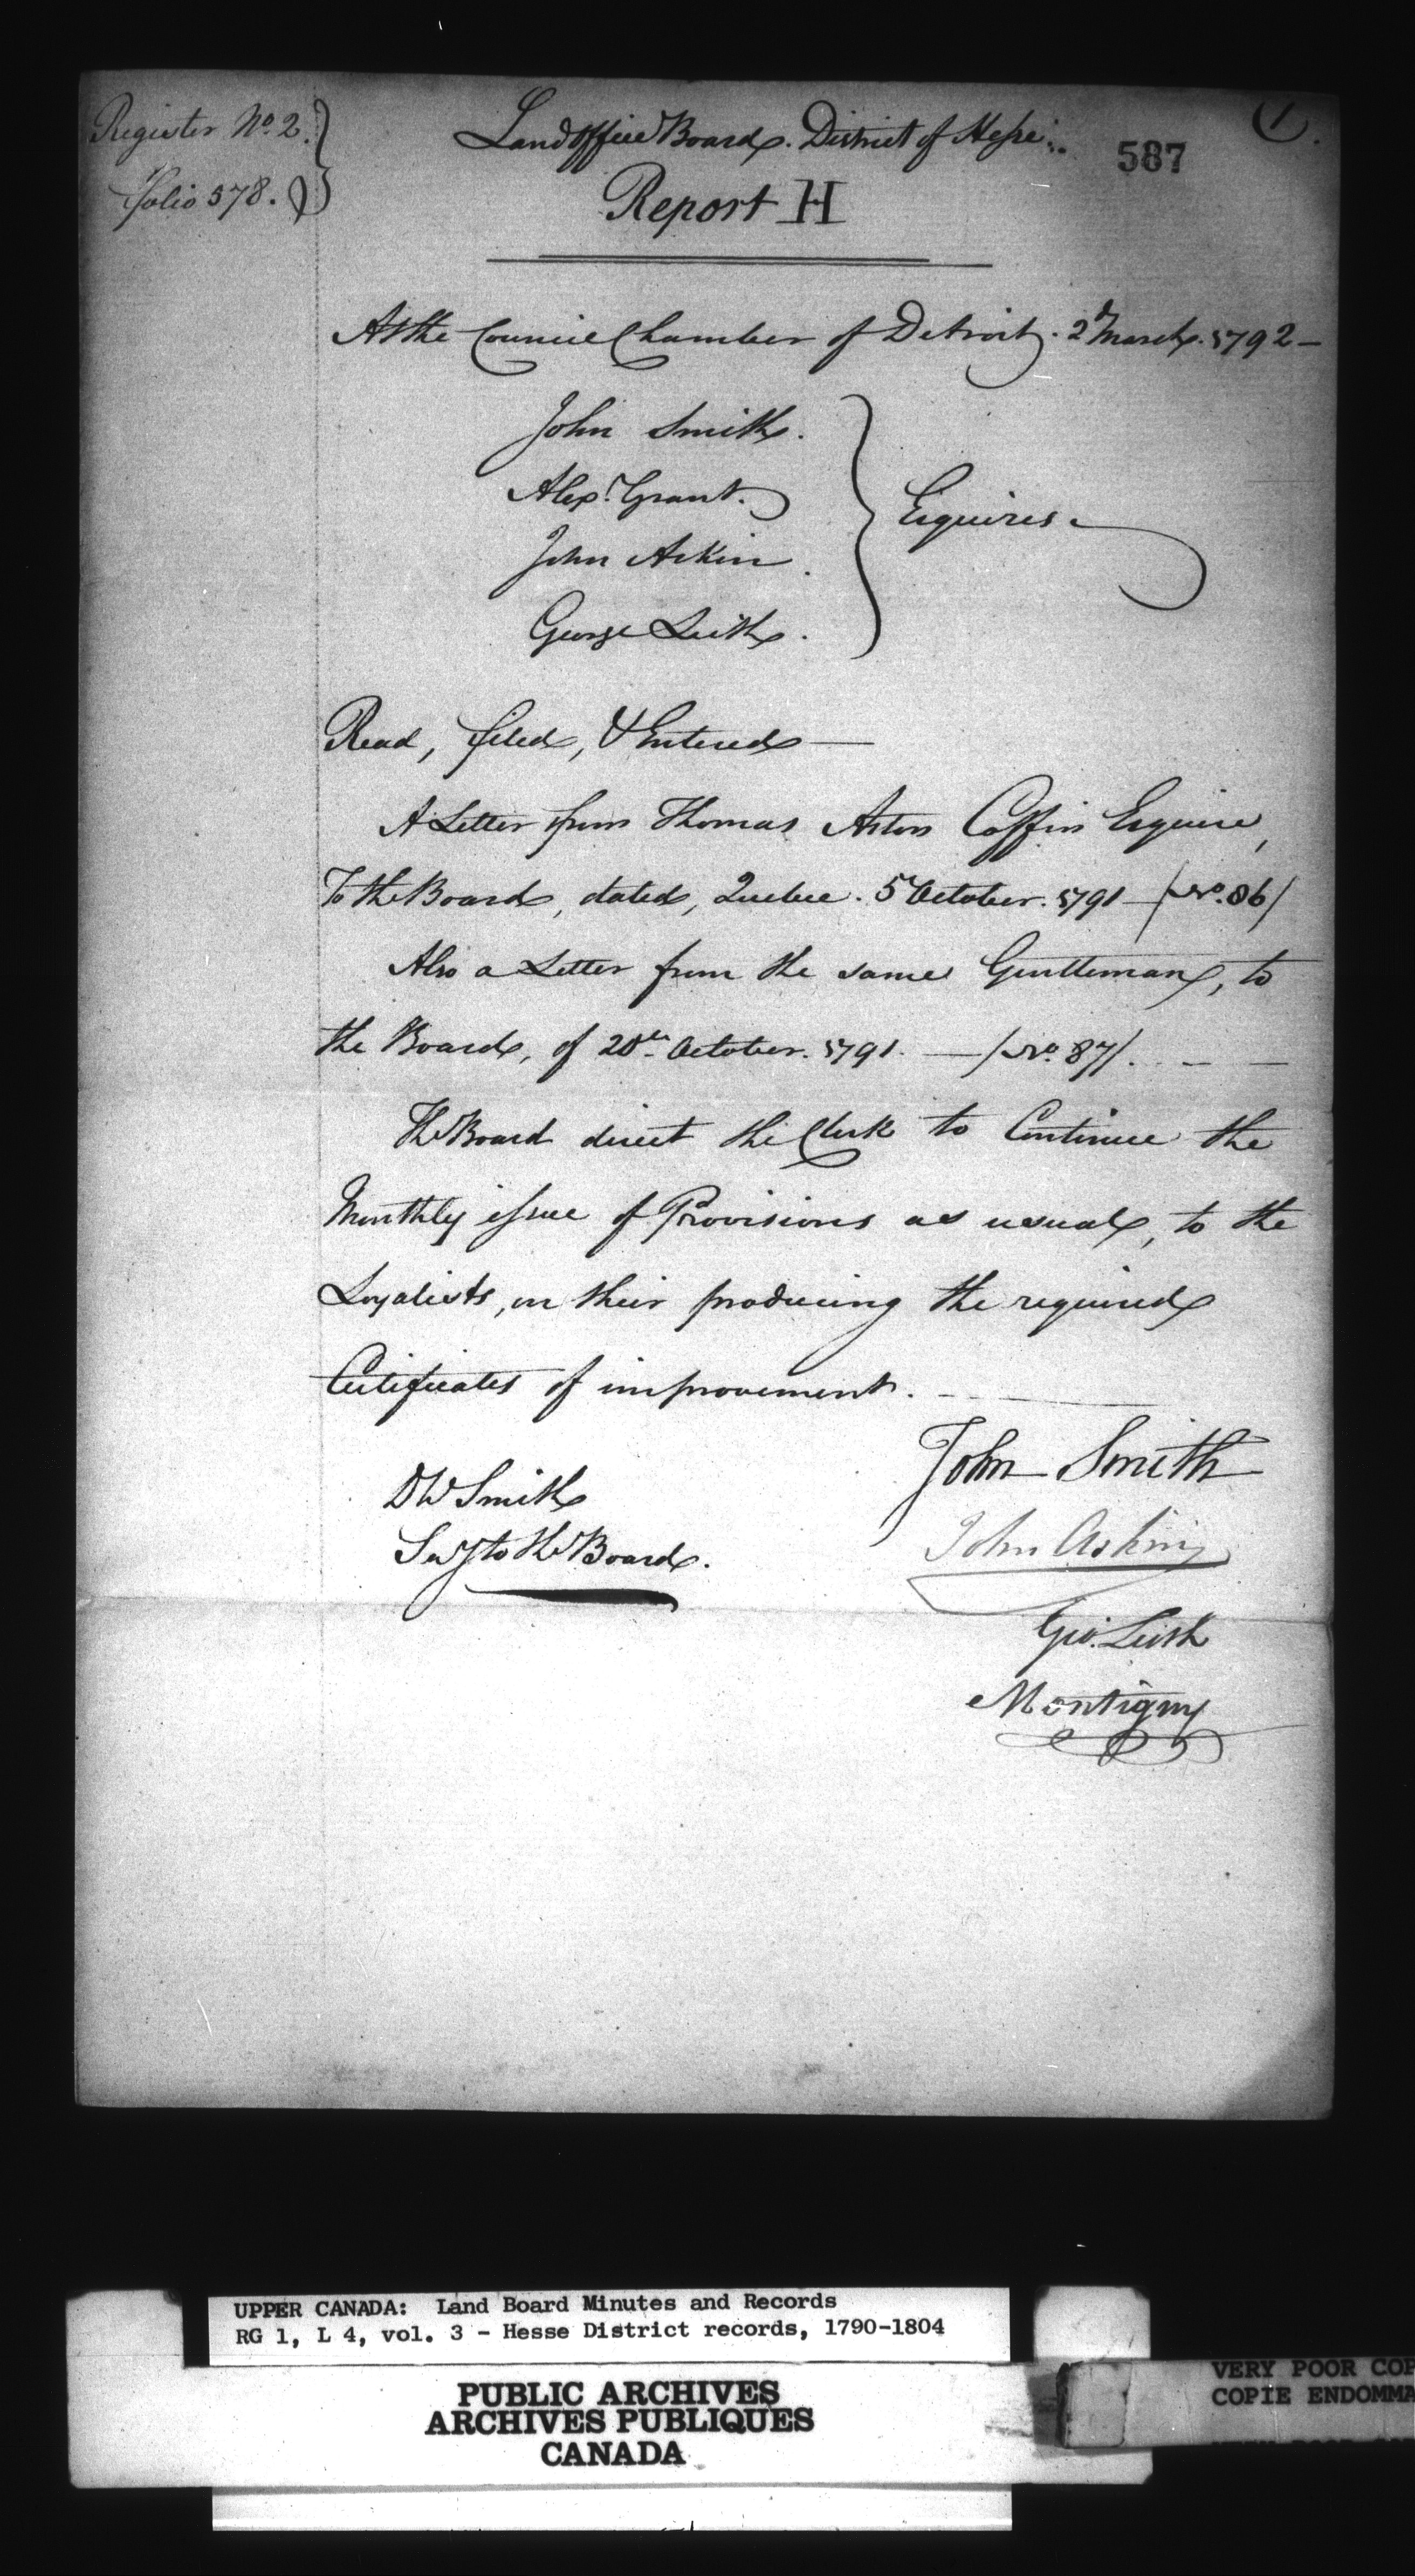 Register No. 2.
folio 578.
Land Office Board. District of Hesse.
587
1
Report H
At the Council Chamber of Detroit. 2d March. 1792 —
John Smith.
Alexr. Grant.
John Askin.
George Leith.
Esquires.
Read, filed, & Entered —
A Letter from Thomas Aston Coffin Esquire,
To the Board, dated, Quebec. 5th October. 1791 — /No. 86/
Also a Letter from the same Gentleman, to
the Board, of 20th October. 1791. — /No. 87/.
The Board direct the Clerk to Continue the
Monthly issue of Provisions as usual, to the
Loyalists, on their producing the required
Certificates of improvement.
John Smith
DW Smith
John Askin
Secy to the Board.
Geo. Leith
Montigny
UPPER CANADA: Land Board Minutes and Records
RG 1, L 4, vol. 3 - Hesse District records, 1790-1804
PUBLIC ARCHIVES
ARCHIVES PUBLIQUES
CANADA
VERY POOR COP
COPIE ENDOMMA